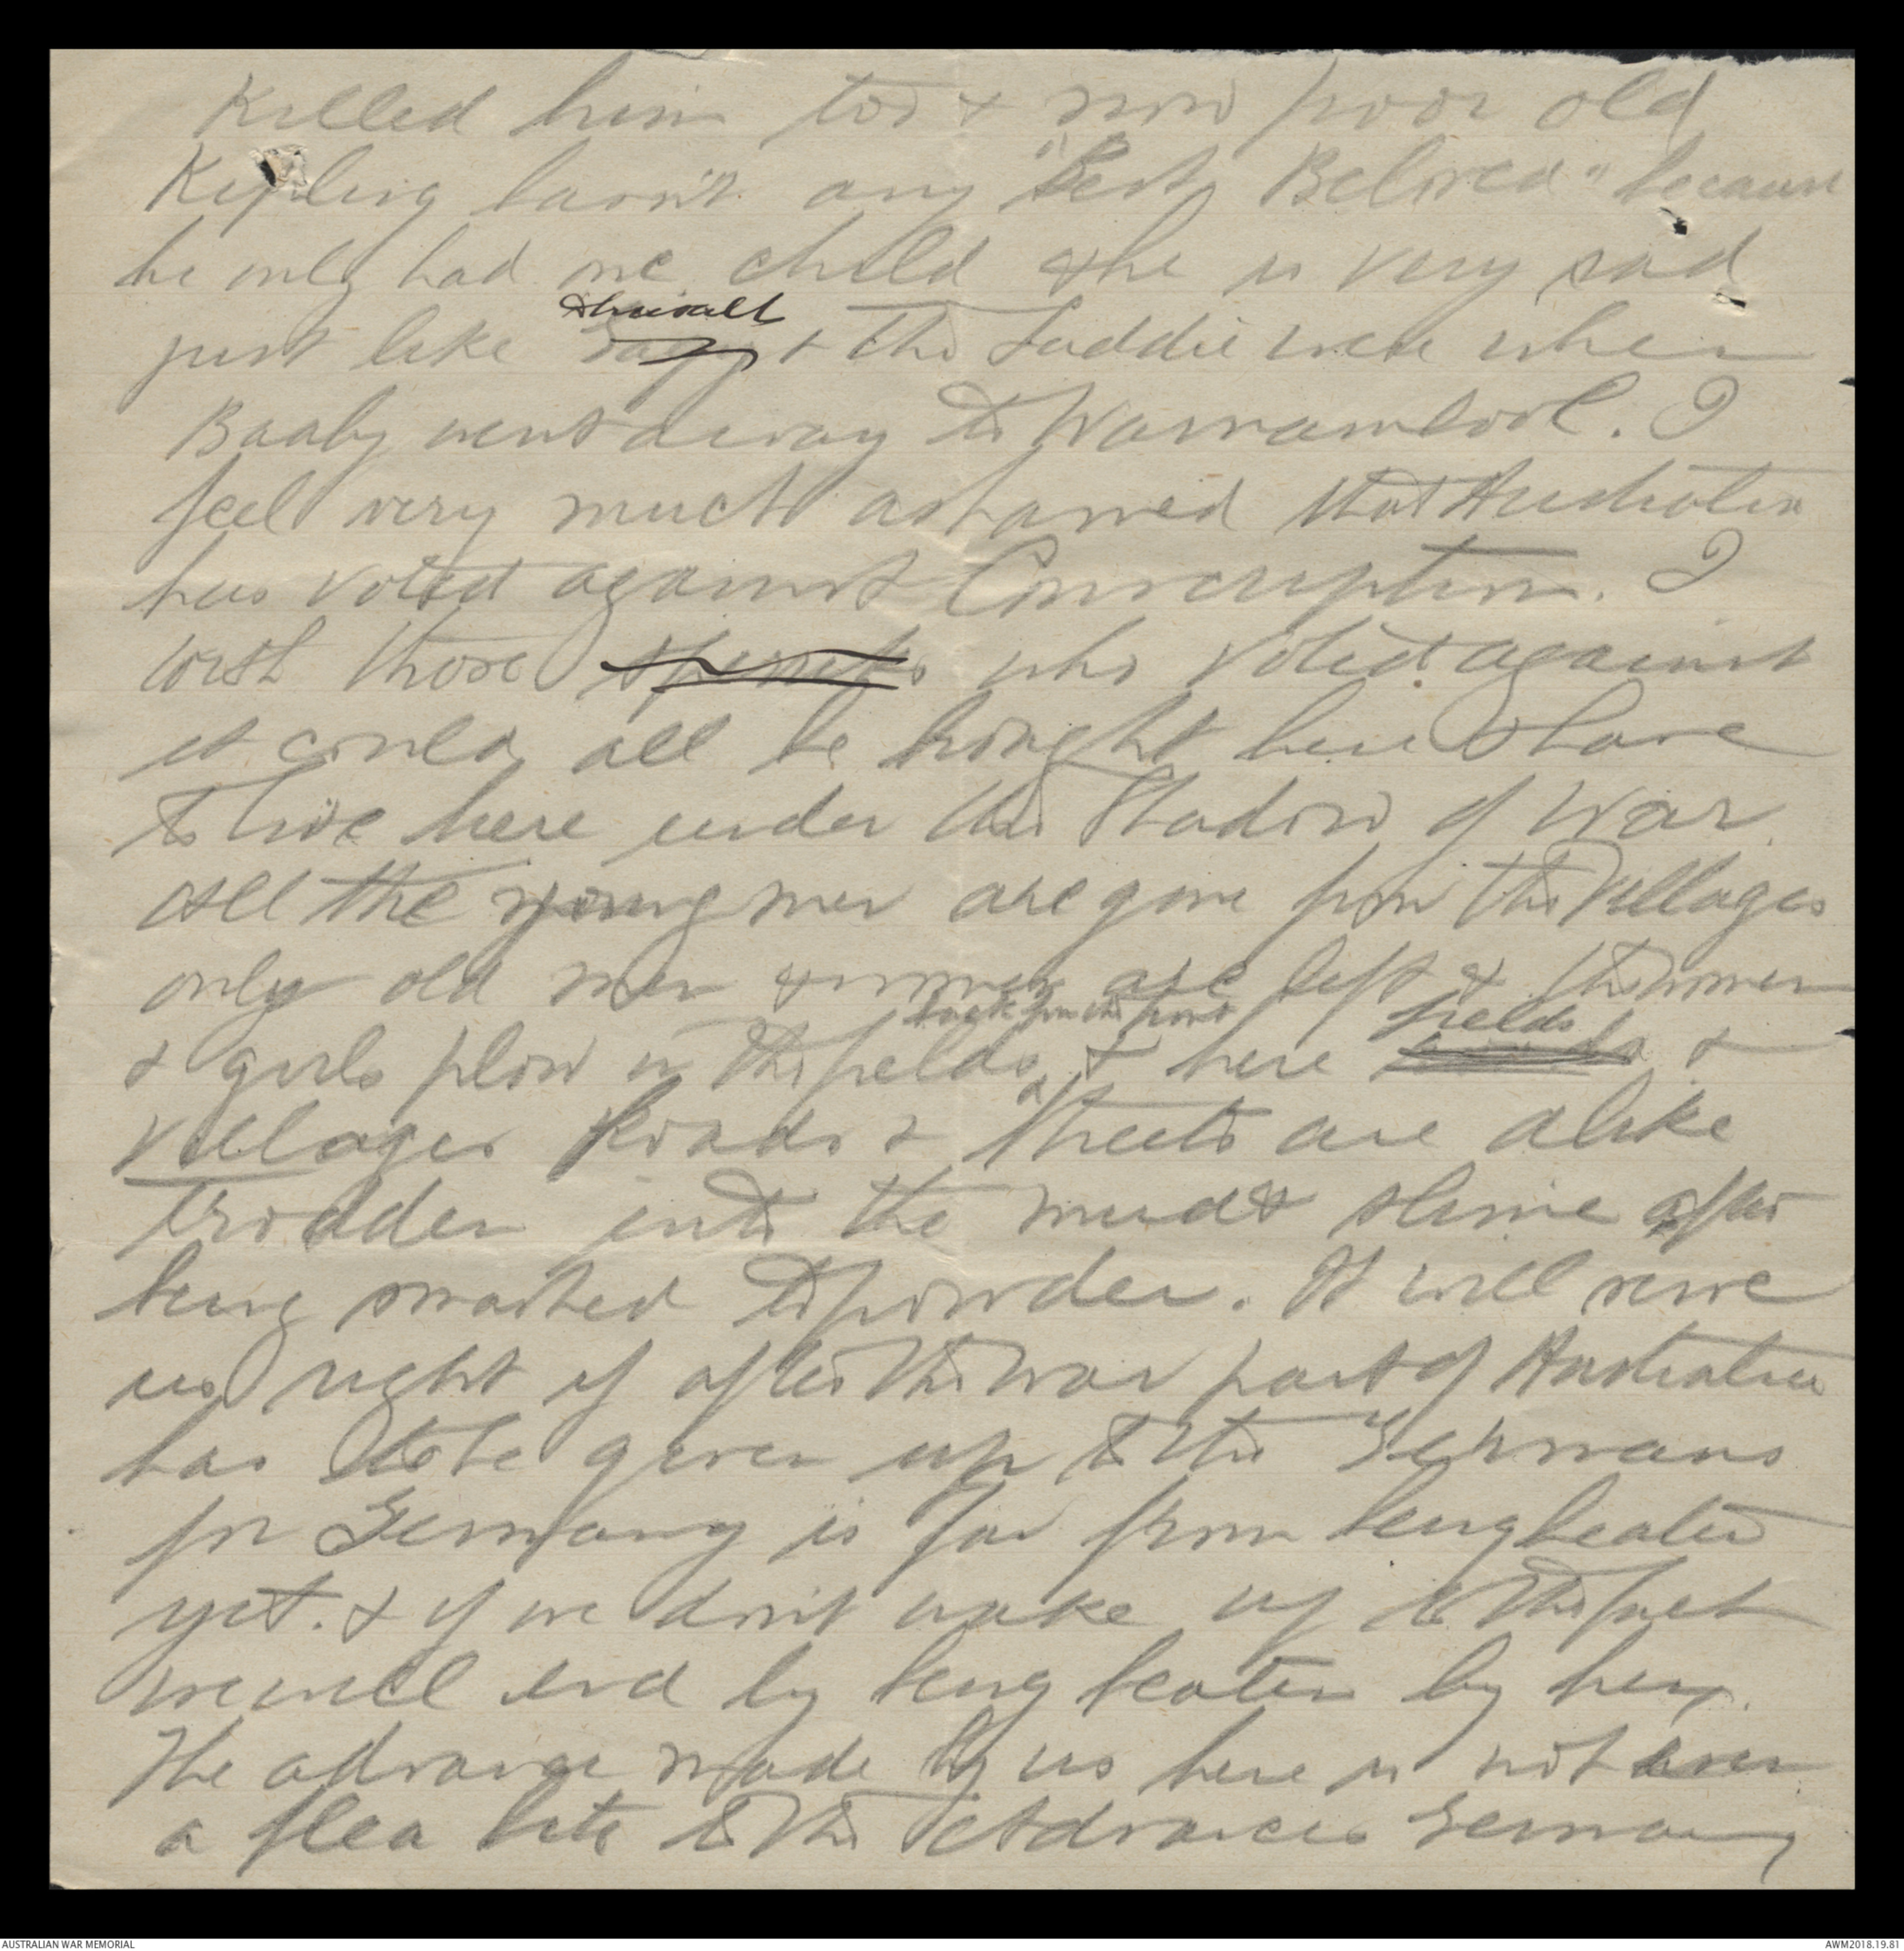 Killed him too & now poor old
Kipling hasn't any "Best Beloved" because
he only had one child & he is very sad
just like & the Laddie were when
Baaby went away to Warrnambool. I
feel very much ashamed that Australia
has voted against Conscription. I
wish those who voted against
it could all be brought here & have
to live here under the Shadow of War.
All the young men are gone from the Villages
only old men & women are left & the women
back from the front fields
& girls plow in the fields, & here &
Villages Roads & Streets are alike
trodden into the mud & slime after
being smashed to powder. It will serve
us right if after the war part of Australia
has to be given up to the Germans
for Germany is far from being beaten
yet. & if we don't wake up to the fact
we will end by being beaten by her.
The advance made by us here is not even
a flea bite to the Advances Germany
AUSTRALIAN WAR MEMORIAL
AWM2018.19.81